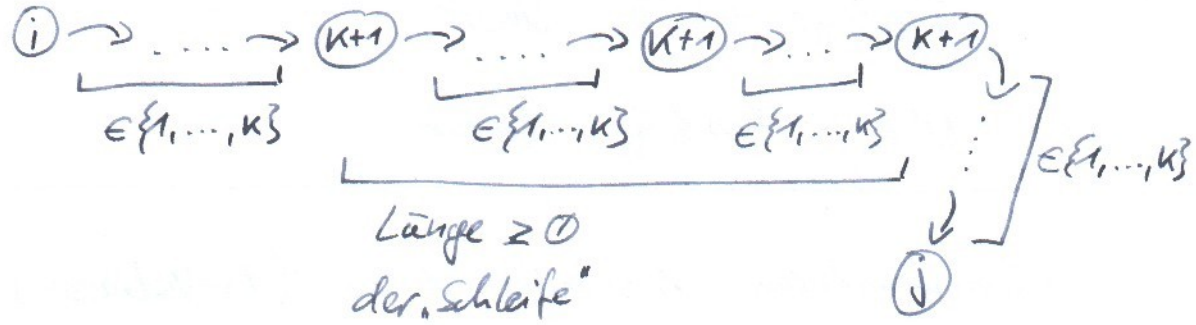 i → .... → K+1 → .... → K+1 → ... → K+1
∈{1,...,K} ∈{1,...,K} ∈{1,...,K} ∈{1,...,K}
Länge ≥ 0
der „Schleife"
j